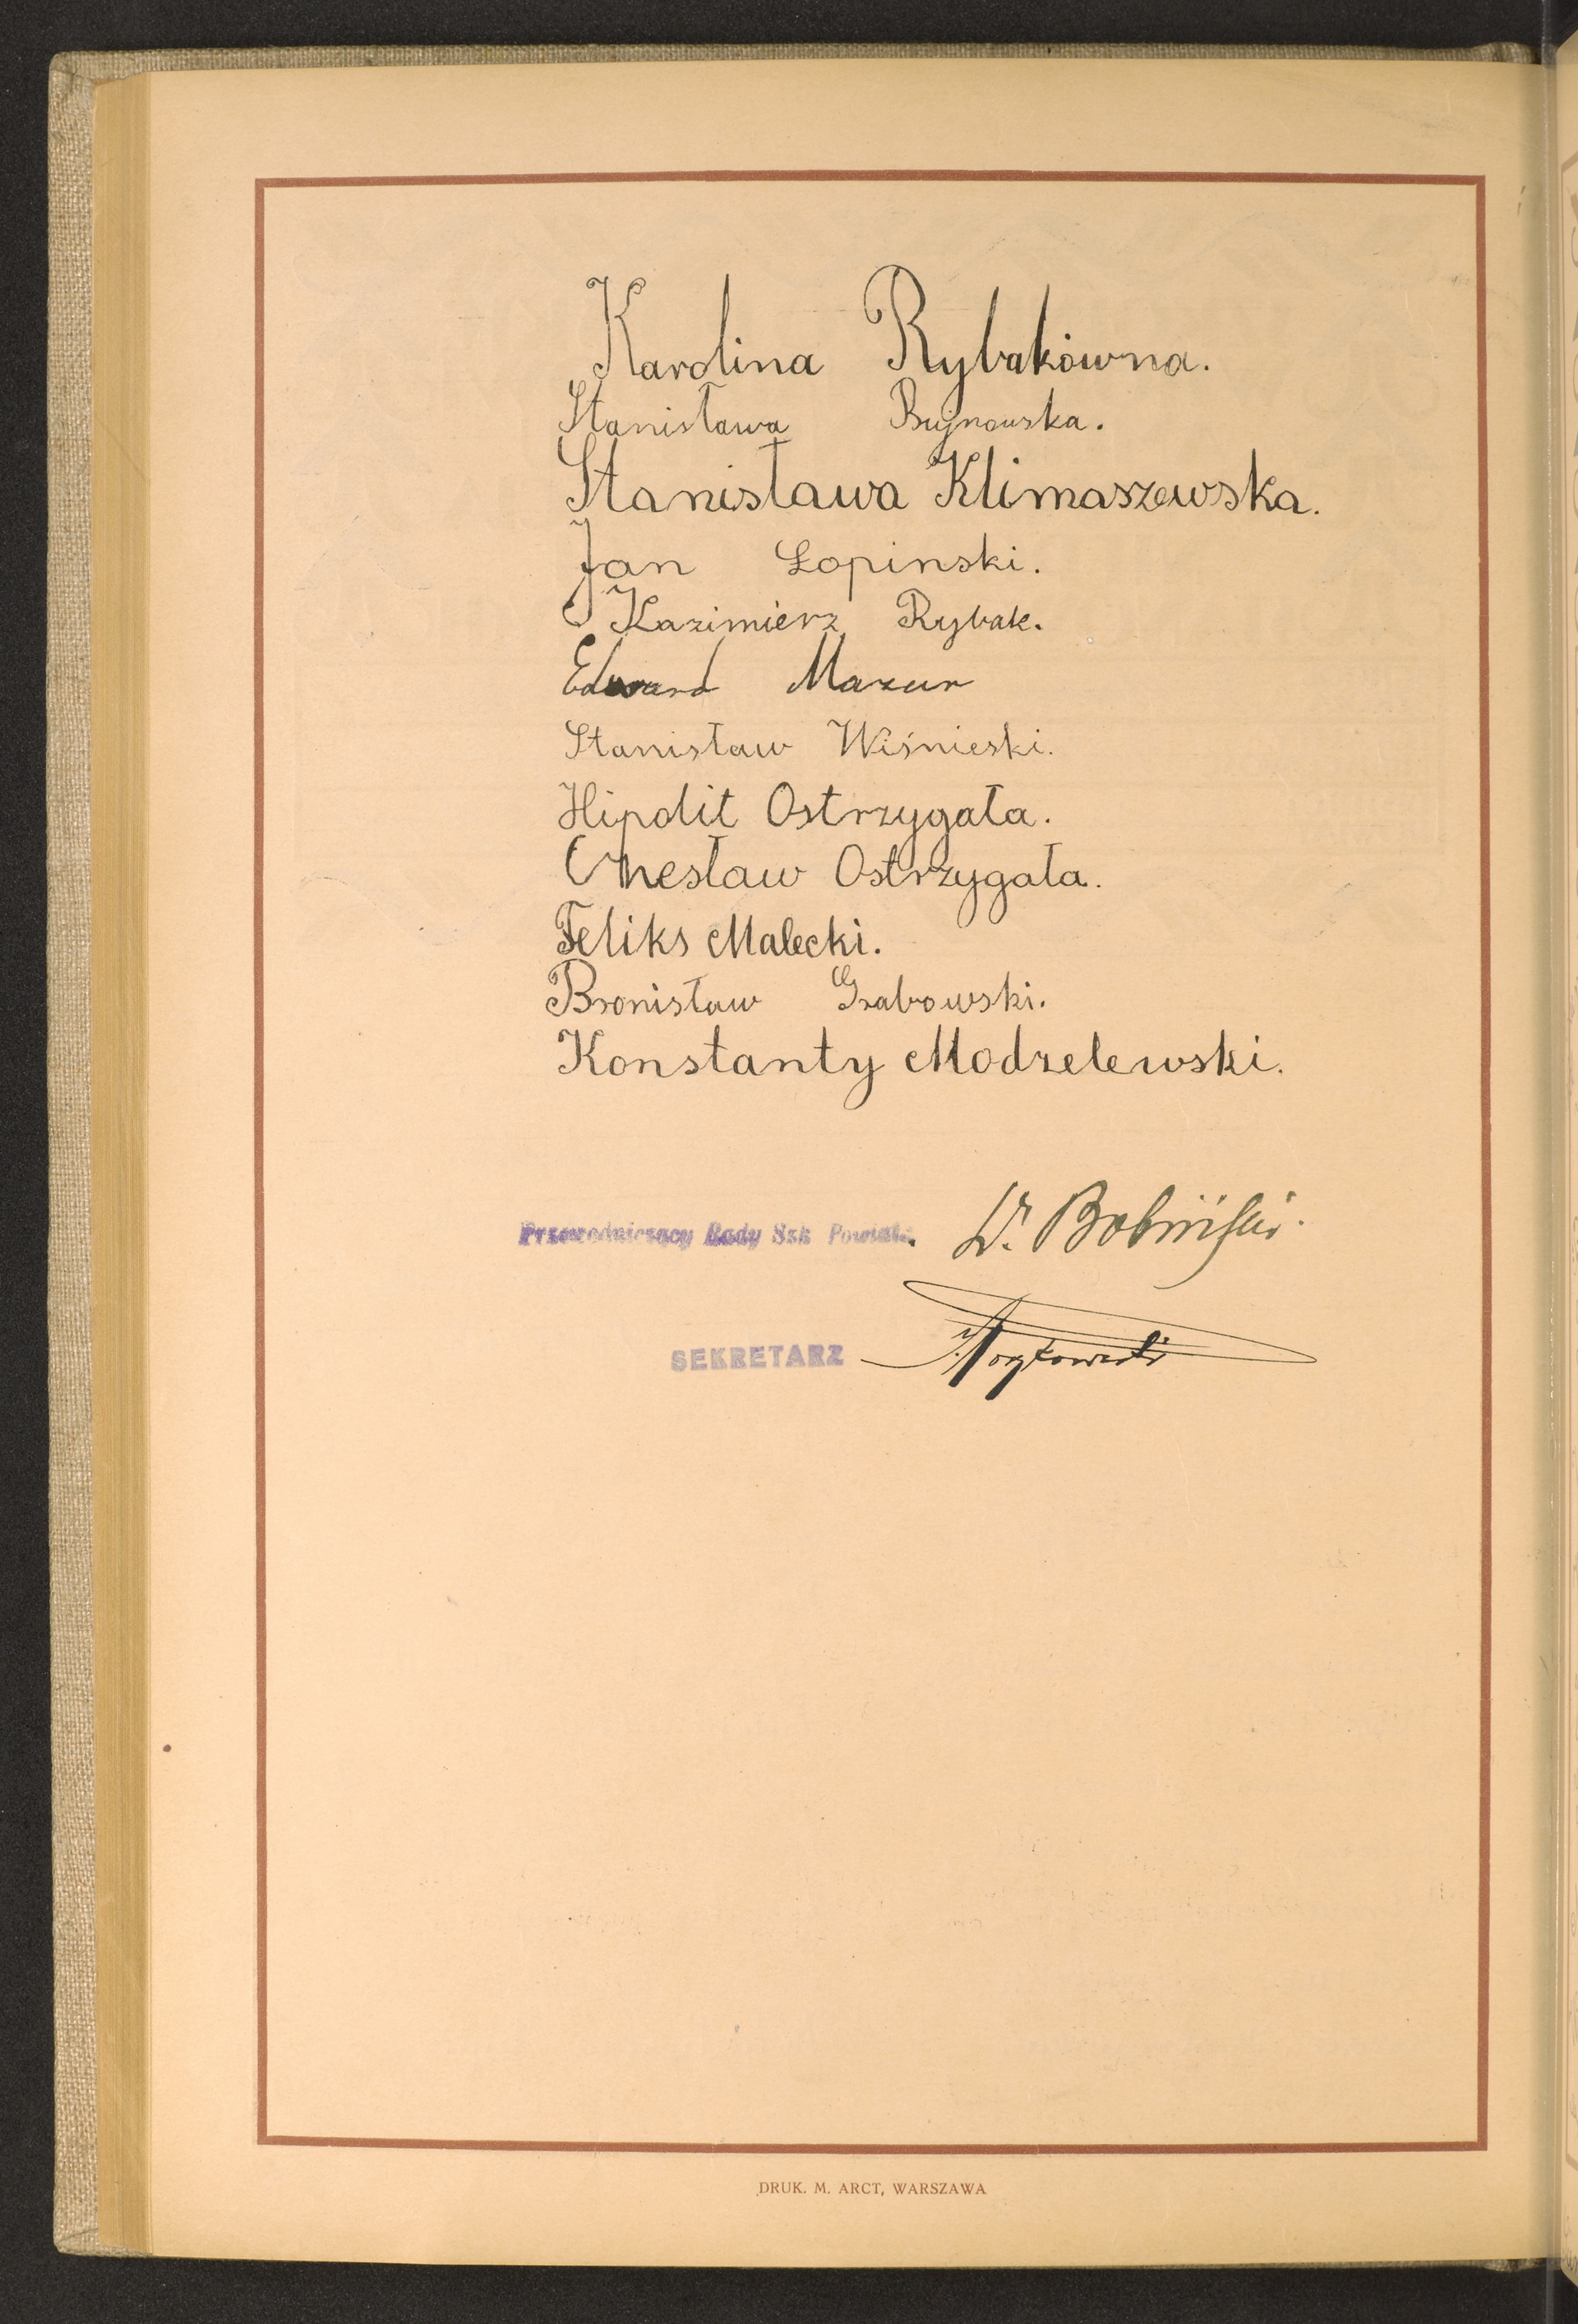 Karolina Rybakówna.
Stanisława Bujnowska.
Stanisława Klimaszewska.
Jan Łopinski.
Kazimierz Rybak.
Edward Mazur
Stanisław Wiśnieski.
Hipolit Ostrzygała.
Czesław Ostrzygała.
Feliks Malecki.
Bronisław Grabowski.
Konstanty Modzelewski.
Przewodniczący Rady Szk Powiat. Dr. Bobiński.
SEKRETARZ
DRUK. M. ARCT, WARSZAWA